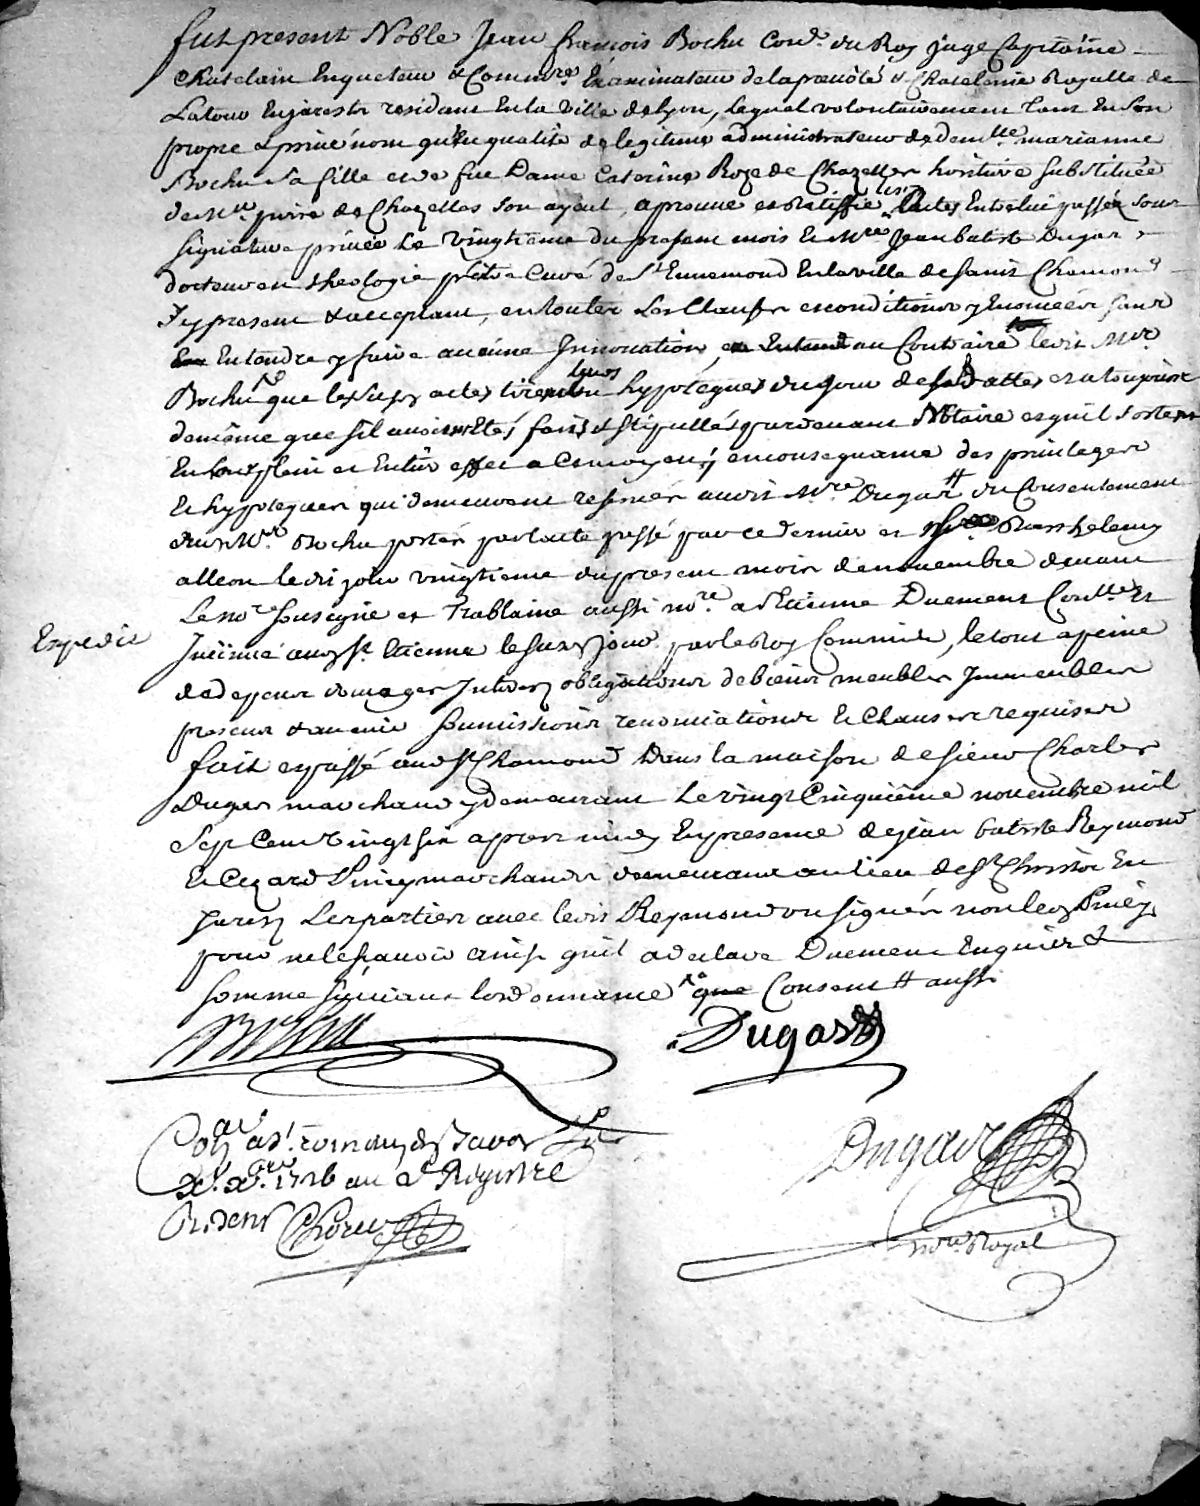 fut present Noble Jean françois Bochu Con.r du Roy juge Capitaine
Chatelain Enqueteur & Comm.re Examinateur de la preuôté & Chatelenie Royalle de
Latour Enjarestz residant En la Ville de lyon, lequel volontairement tant En son
propre & priué nom qu'En qualité de legitime administrateur de dem.lle marianne
Bochu sa fille et de feue Dame Caterine Roze de Chazelles heritiere substituée
de M.re pierre de Chazelles son ayeul, aprouue et Ratiffie les actes Entre lui passés sous
signature priuée Le Vingtieme du present mois Et M.re Jean batiste Dugas
docteur en theologie prêtre Curé de S.t Ennemond En la ville de saint Chamond
Icy present & acceptant, en toutes Les Clauses et conditions y Enoncées sans
Entendre y faire aucune Innouation, Entend au Contraire ledit M.r
Bochu que les susd actes tirent leurs hypoteques du jour de la datte et
de même que s'il auoient Etés faits & stipullés pardeuant Nottaire et qu'il sortent
En leur plein et Entier effet a Ce moyen, en consequance des priuileges
Et hypoteques qui demeurent reserués audit M.re Dugas # du Consentement
dud M.r Bochu porté par lacte passé par ce dernier et Barthelemy
alleon ledit jour vingtieme du present mois de nouembre deuant
Le no.re sousigné et Trablaine aussi no.re a S.t Etienne Duement Con.llé Et
Insinué aud S.t Etienne le susd Jour par le Roy Commis, le tout a peine
de depens domages Interes obligations de biens meubles Immeubles
presens & auenir soumissions renonciations Et Clauses requises
fait et passé aud S.t Chamond Dans la maison de sieur Charles
Dugas marchand y demeurant Le vingt Cinquième nouembre mil
Sept Cent Vingt six apres midy En presence de jean batiste Reymond
Et Cezard Piney marchands demeurant au lieu de S.t Christo En
Jarest Les parties auec ledit Reymond ont signés non led Piney
pour ne le sçauoir ainsi qu'il a declaré Duement Enquis &
sommé suiuant lordonnance que Consent # aussi
Expedié
Bochu
Dugas
Dugas
no.re Royal
X.bre 1726 au 2.e Registre